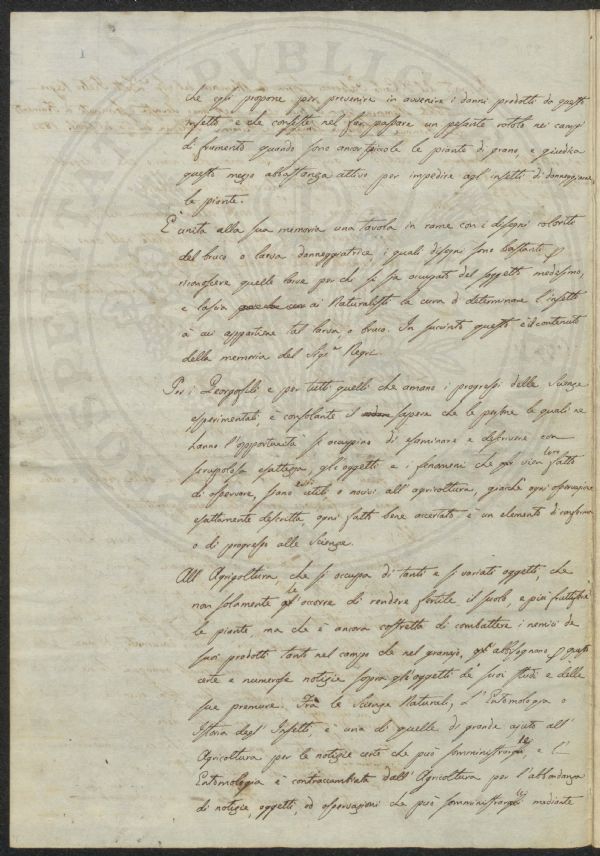 che egli propone per prevenire in avvenire i danni prodotti da questi
insetti e che consiste nel far passare un pesante rotolo nei campi
di frumento quando sono ancor piccole le piante di grano e giudica
questo mezzo abbastanza attivo per impedire agl'insetti di danneggiare
le piante.
È unita alla sua memoria una tavola in rame con i disegni coloriti
del bruco o larva danneggiatrice, i quali disegni sono bastanti p
riconoscere quelle larve per chi si sia occupato del soggetto medesimo,
e lascia ai Naturalisti la cura di determinare l'insetto
a cui appartiene tal larva, o bruco. In succinto questo è il contenuto
della memoria del Sigr Regri
Per i Georgofili e per tutti quelli che amano i progressi delle Scienze
esperimentali, è consolante il sapere che le persone le quali ne
hanno l'opportunità si occupino di esaminare e descrivere con
scrupolosa esattezza, gl'oggetti e i fenomeni che vien loro fatto
di osservare, siano essi utili, o nocivi all'agricoltura, giacchè ogni osservazione
esattamente descritta, ogni fatto bene accertato è un elemento di conferma
o di progresso alle Scienze.
All'Agricoltura, che si occupa di tanti e sì variati oggetti, che
non solamente le occorre di rendere fertile il suolo, e più fruttifere
le piante, ma che è ancora costretta di combattere i nemici de
suoi prodotti tanto nel campo che nel granajo, gl'abbisognano p questo
certe e numerose notizie sopra gl'oggetti de' suoi studi e delle
sue premure. Trà le Scienze Naturali, l'Entomologia o
Istoria degl'Insetti, è una di quelle di grande ajuto all'
Agricoltura per le notizie certe che può somministrarle, e l'
Entomologia è contraccambiata dall'Agricoltura per l'abbondanza
di notizie, oggetti, ed osservazioni che può somministrarle mediante